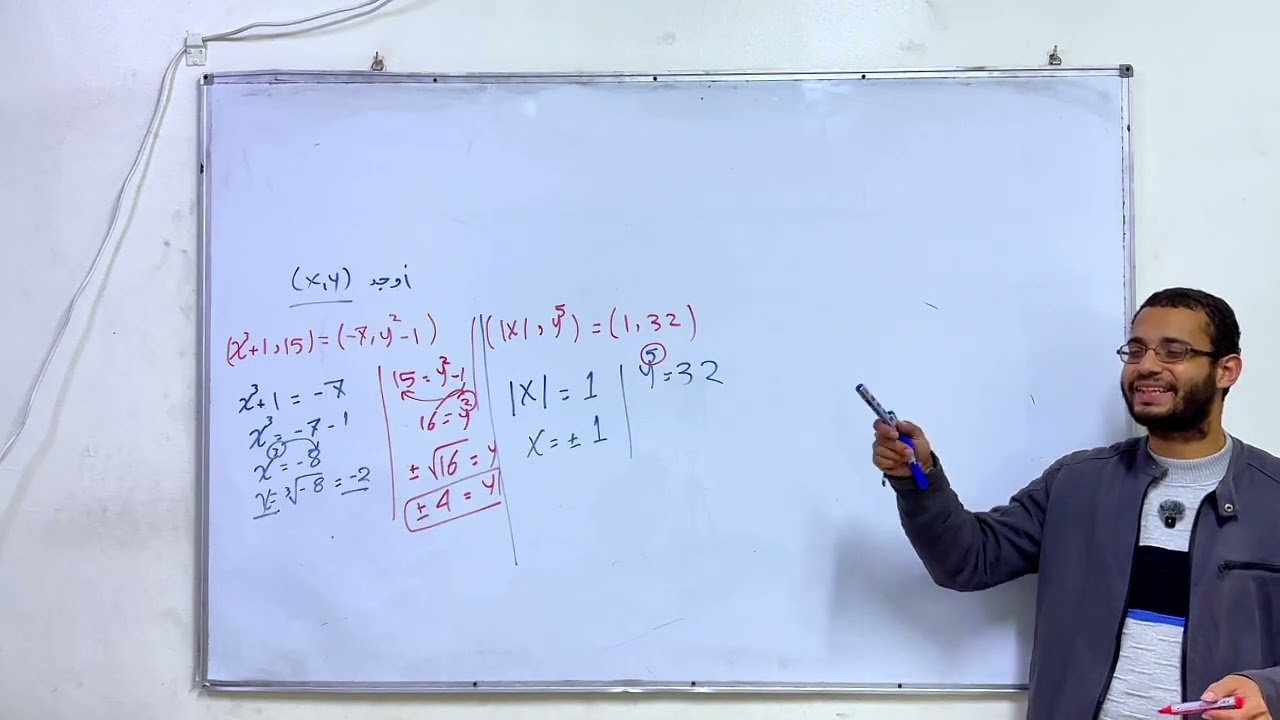 أوجد (x,y)
(x³+1,15)=(-7,y²-1)
x³+1=-7
x³=-7-1
x³=-8
x=³√-8=-2
15=y²-1
16=y²
±√16=y
±4=y
(|x|,y⁵)=(1,32)
|x|=1
x=±1
y⁵=32